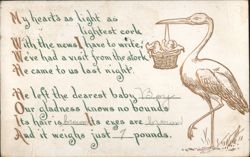 My hearts as light as
lightest cork
With the news I have to write;
We've had a visit from the stork
He came to us last night.
He left the dearest baby Boy
Our gladness knows no bounds
Its hair is brown Its eyes are brown
And it weighs just 7 pounds.